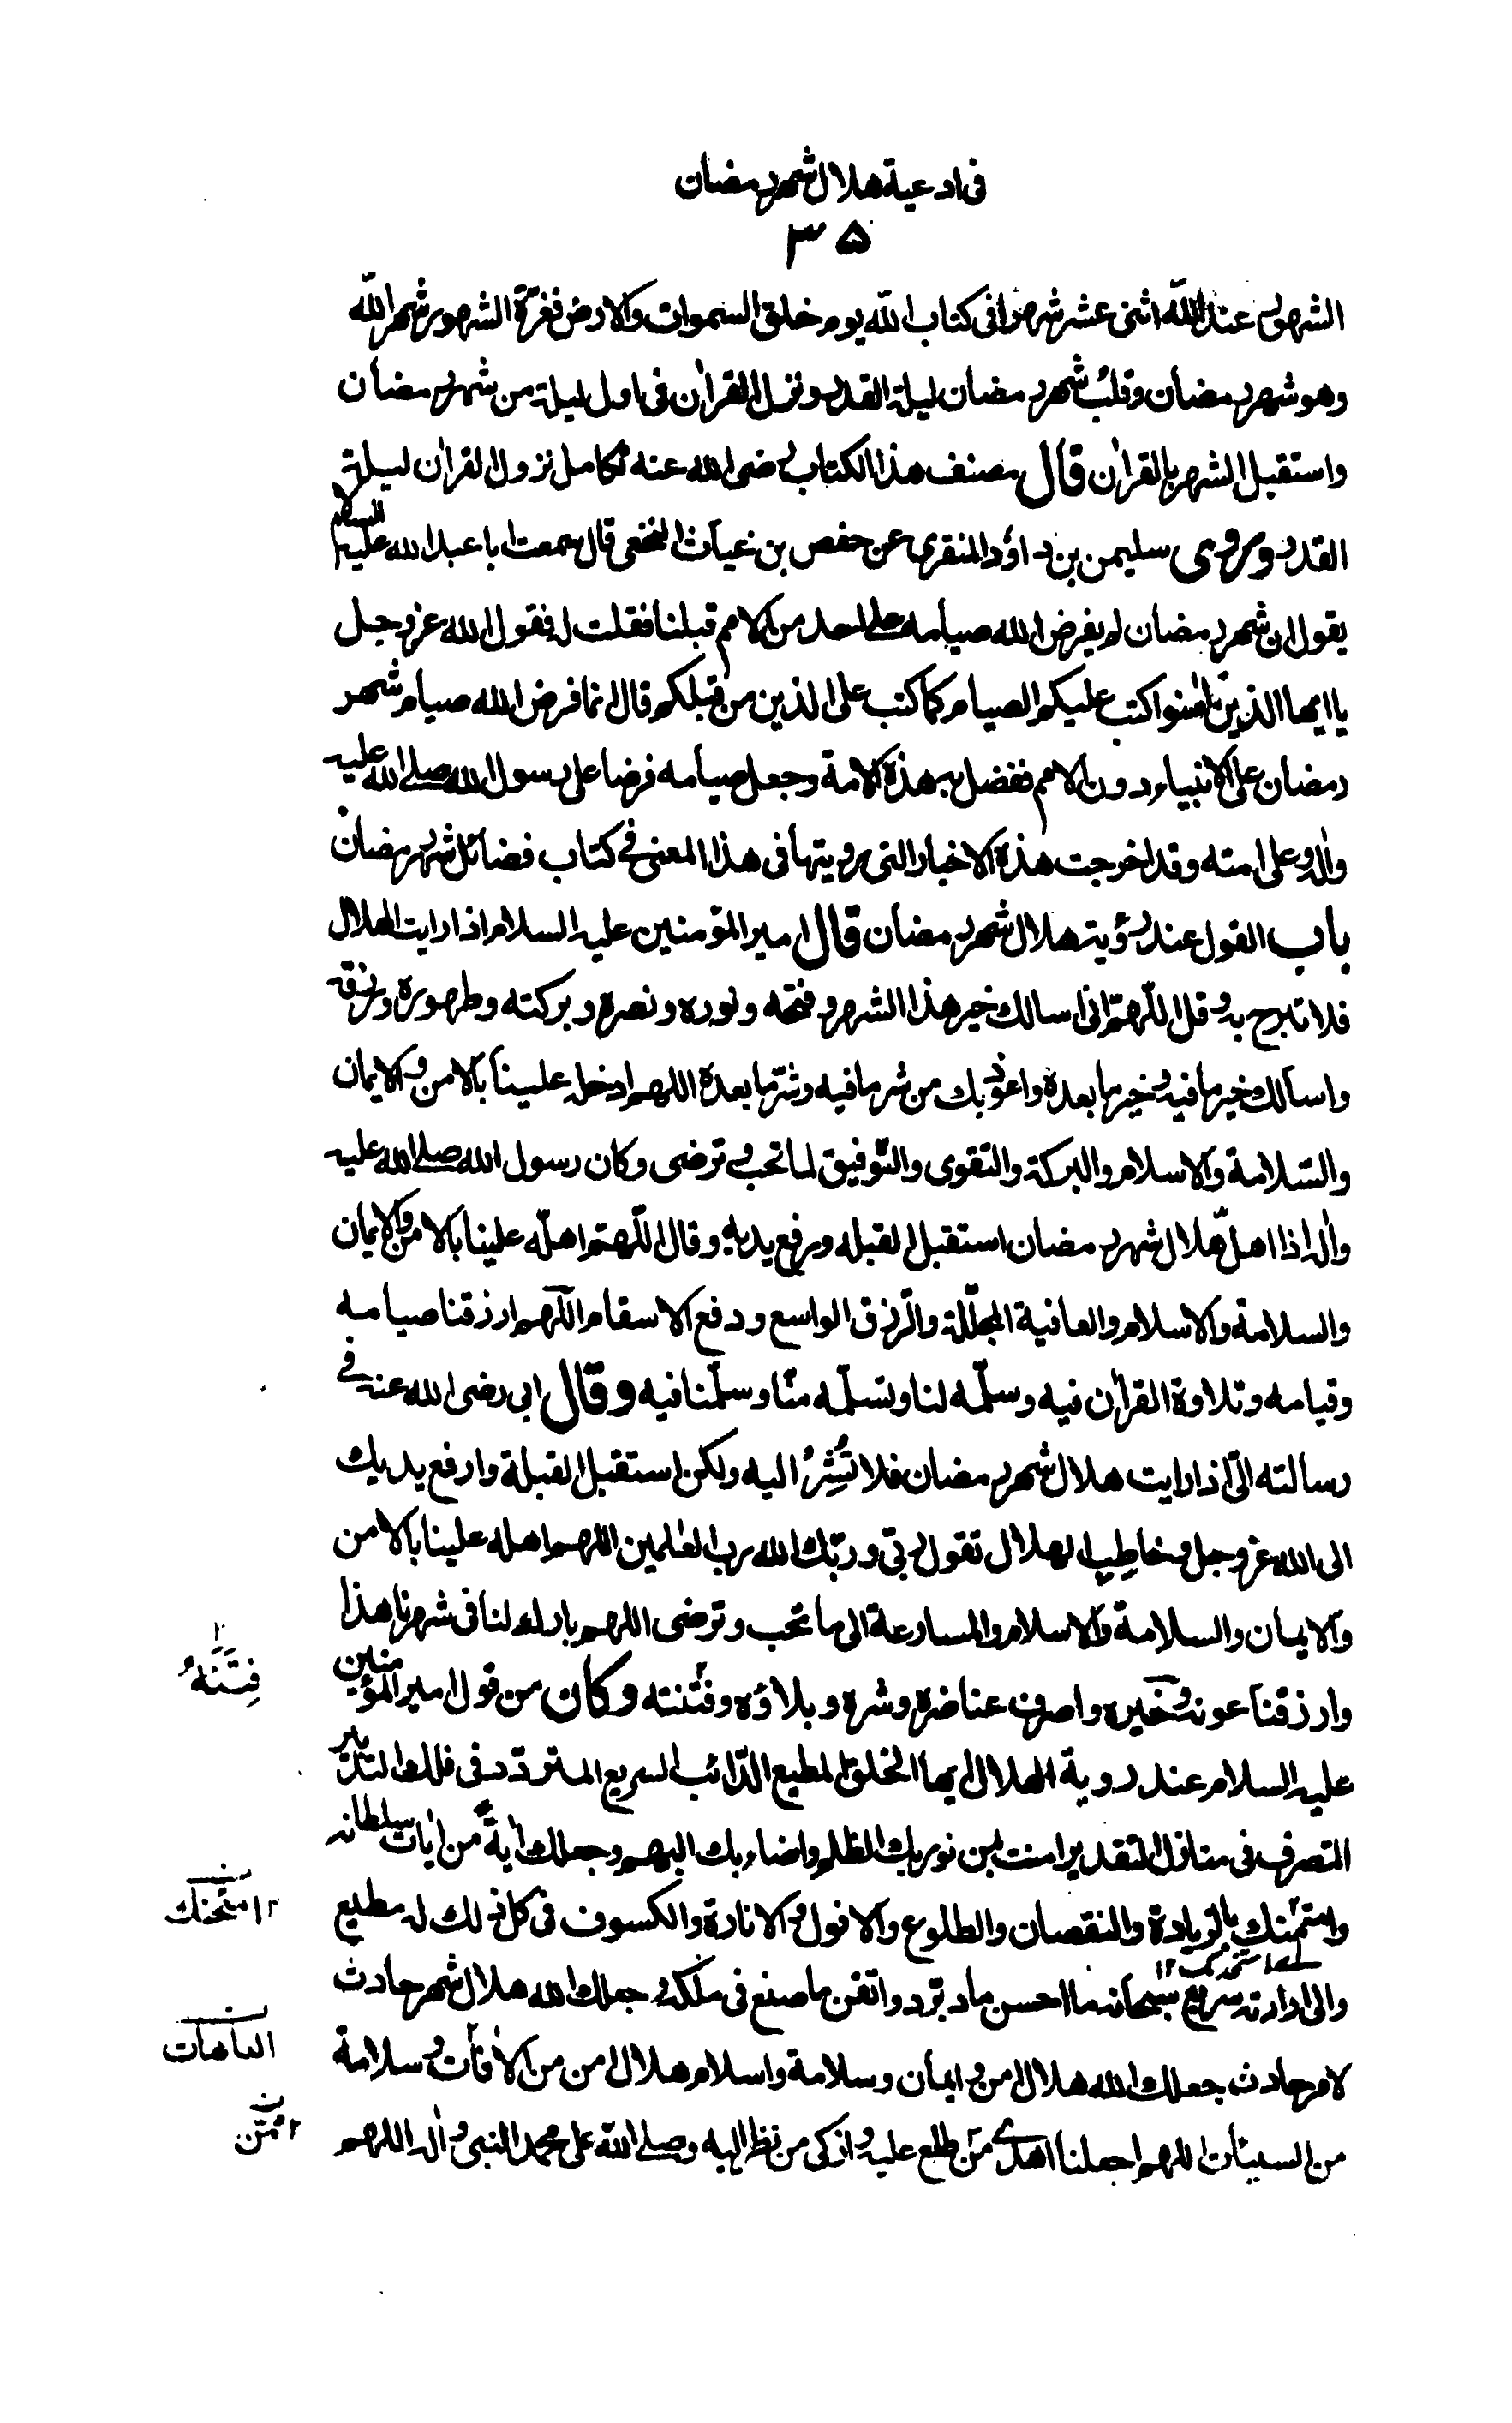 فى ادعية هلال شهر رمضان
٣٥
الشهور عند الله اثنى عشر شهرا فى كتاب الله يوم خلق السموات والارض فغرّة الشهور شهر الله
وهو شهر رمضان وقلبُ شهر رمضان ليلة القدر ونزل القران فى اول ليلة من شهر رمضان
واستقبل الشهر بالقران قال مصنف هذا الكتاب رضى الله عنه تكامل نزول القران ليلة
القدر وروى سليمن بن داؤد المنقرى عن حفص بن غياث النخعى قال سمعت ابا عبد الله عليه السلام
يقول ان شهر رمضان لم يفرض الله صيامه على احد من الامم قبلنا فقلت له فقول الله عز وجل
يا ايها الذين امنوا كتب عليكم الصيام كما كتب على الذين من قبلكم قال انما فرض الله صيام شهر
رمضان على الانبياء دون الامم ففضل به هذه الامة وجعل صيامه فرضا على رسول الله صلى الله عليه
واله وعلى امته وقد اخرجت هذه الاخبار التى رويتها فى هذا المعنى فى كتاب فضائل شهر رمضان
باب القول عند رؤية هلال شهر رمضان قال امير المؤمنين عليه السلام اذا رايت الهلال
فلا تبرح به وقل اللّهمّ انى اسالك خير هذا الشهر وفتحه ونوره ونصره وبركته وطهوره ورزقه
واسالك خير ما فيه وخير ما بعده واعوذ بك من شر ما فيه وشرّ ما بعده اللهم ادخله علينا بالامن والايمان
والسّلامة والاسلام والبركة والتقوى والتّوفيق لما تحب وترضى وكان رسول الله صلى الله عليه
واله اذا اهلّ هلال شهر رمضان استقبل القبله ورفع يديه وقال اللّهمّ اهلّه علينا بالامن والايمان
والسلامة والاسلام والعافية المجلّلة والرّزق الواسع ودفع الاسقام اللّهم ارزقنا صيامه
وقيامه وتلاوة القران فيه وسلّمه لنا وتسلّمه منّا وسلّمنا فيه وقال ابى رضى الله عنه فى
رسالته الىّ اذا رايت هلال شهر رمضان فلا تُشِرْ اليه ولكن استقبل القبلة وارفع يديك
الى الله عز وجل وخاطِب الهلال تقول ربّى وربّك الله رب العلمين اللهم اهله علينا بالامن
والايمان والسلامة والاسلام والمسارعة الى ما تحب وترضى اللهم بارك لنا فى شهرنا هذا
وارزقنا عونه وخيره واصرف عنا ضره وشره وبلاؤه وفتنته وكان من قول امير المؤمنين
فِتَنَهُ
عليه السلام عند روية الهلال ايها الخلق المطيع الدّائب السريع المتردّد فى فلك التدبير
المتصرف فى منازل التقدير امنت بمن نور بك الظلم واضاء بك البهم وجعلك ايةً من ايات سلطانه
وامتهنك بالزيادة والنقصان والطلوع والافول والانارة والكسوف فى كل ذلك له مطيع
امتحنك
والى ارادته سريع سبحانه ما احسن ما دبّر واتقن ما صنع فى ملكه وجعلك الله هلال شهر حادث
لامر حادث جعلك الله هلال امن وايمان وسلامة واسلام هلال امن من الافات وسلامة
العاهات
من السيئات اللهم اجعلنا اهدى من طلع عليه وازكى من نظر اليه وصلى الله على محمد النبى واله اللهم
ممّن